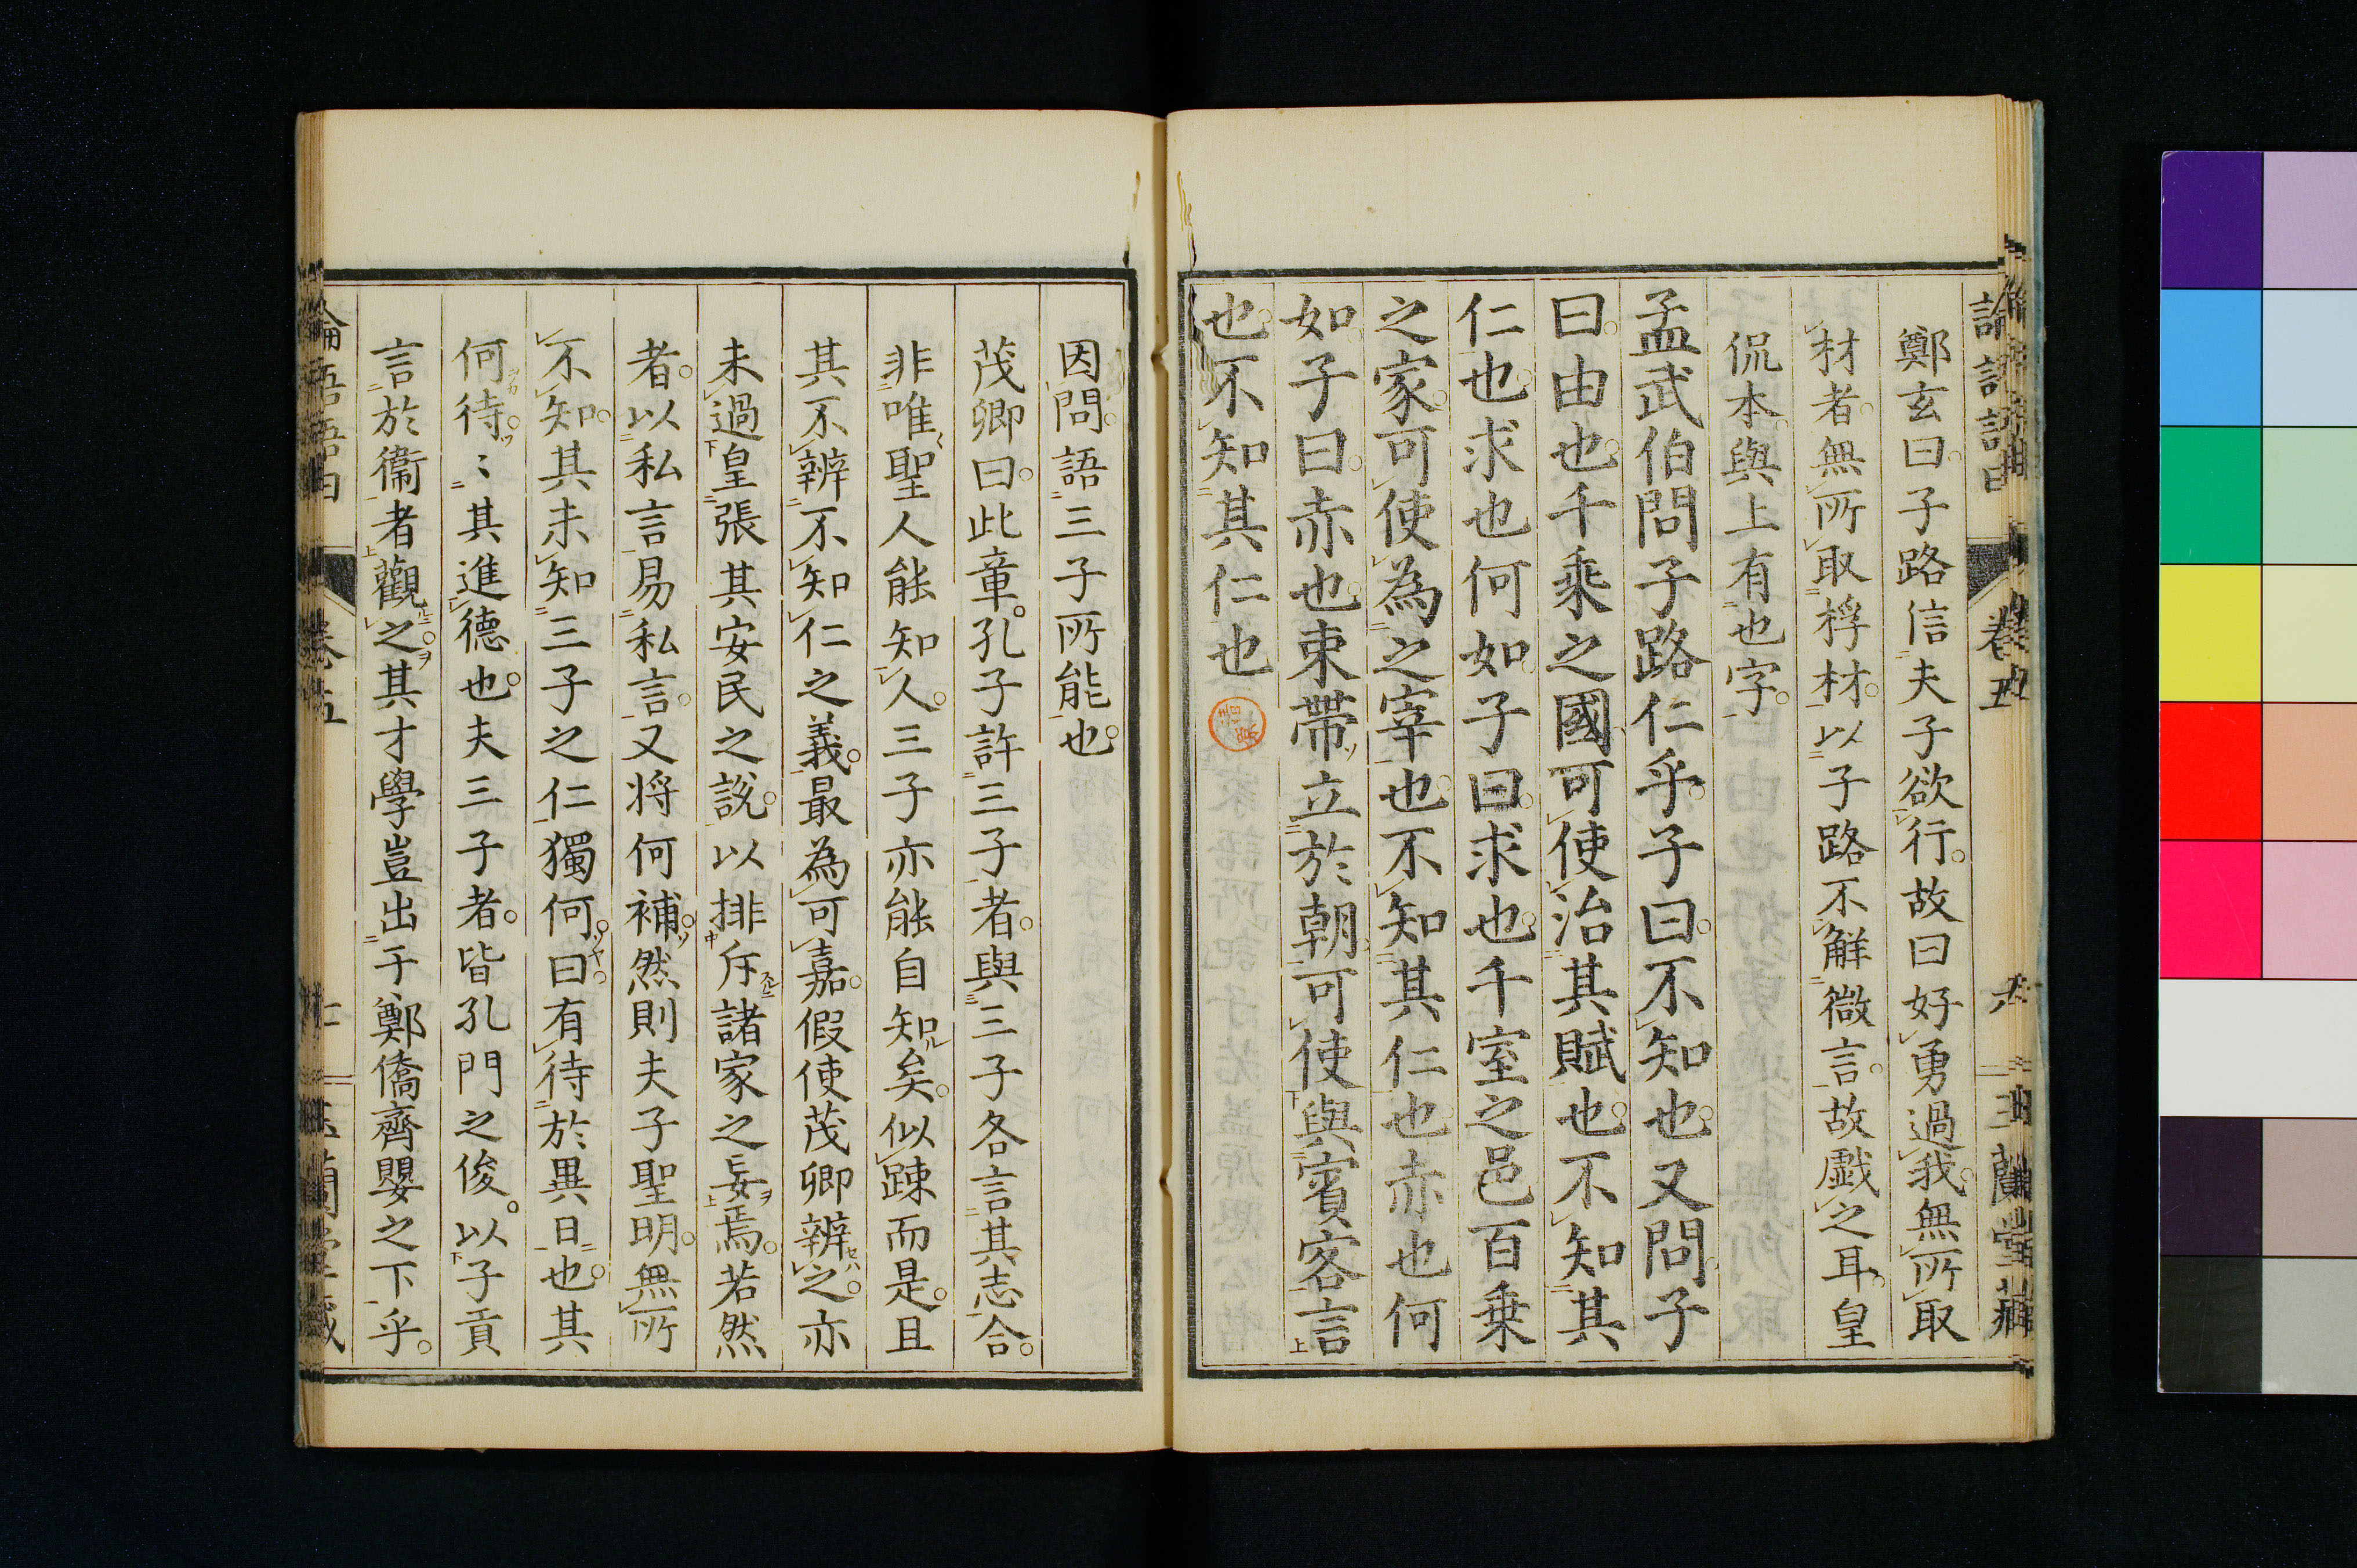 鄭玄曰子路信夫子欲行故曰好勇過我無所取
材者無所取桴材以子路不解微言故戲之耳皇
侃本與上有也字
孟武伯問子路仁乎子曰不知也又問子
曰由也千乘之國可使治其賦也不知其
仁也求也何如子曰求也千室之邑百乗
之家可使為之宰也不知其仁也赤也何
如子曰赤也束帶立於朝可使與賓客言
也不知其仁也
因問語三子所能也
茂卿曰此章孔子許三子者與三子各言其志合
非唯聖人能知人三子亦能自知矣似踈而是且
其不辨不知仁之義最為可嘉假使茂卿辨之亦
未過皇張其安民之説以排斥諸家之妄焉若然
者以私言易私言又将何補然則夫子聖明無所
不知其未知三子之仁獨何曰有待於異日也其
何待〻其進德也夫三子者皆孔門之俊以子貢
言於衞者觀之其才學豈出于鄭僑齊嬰之下乎
論語語由 卷五